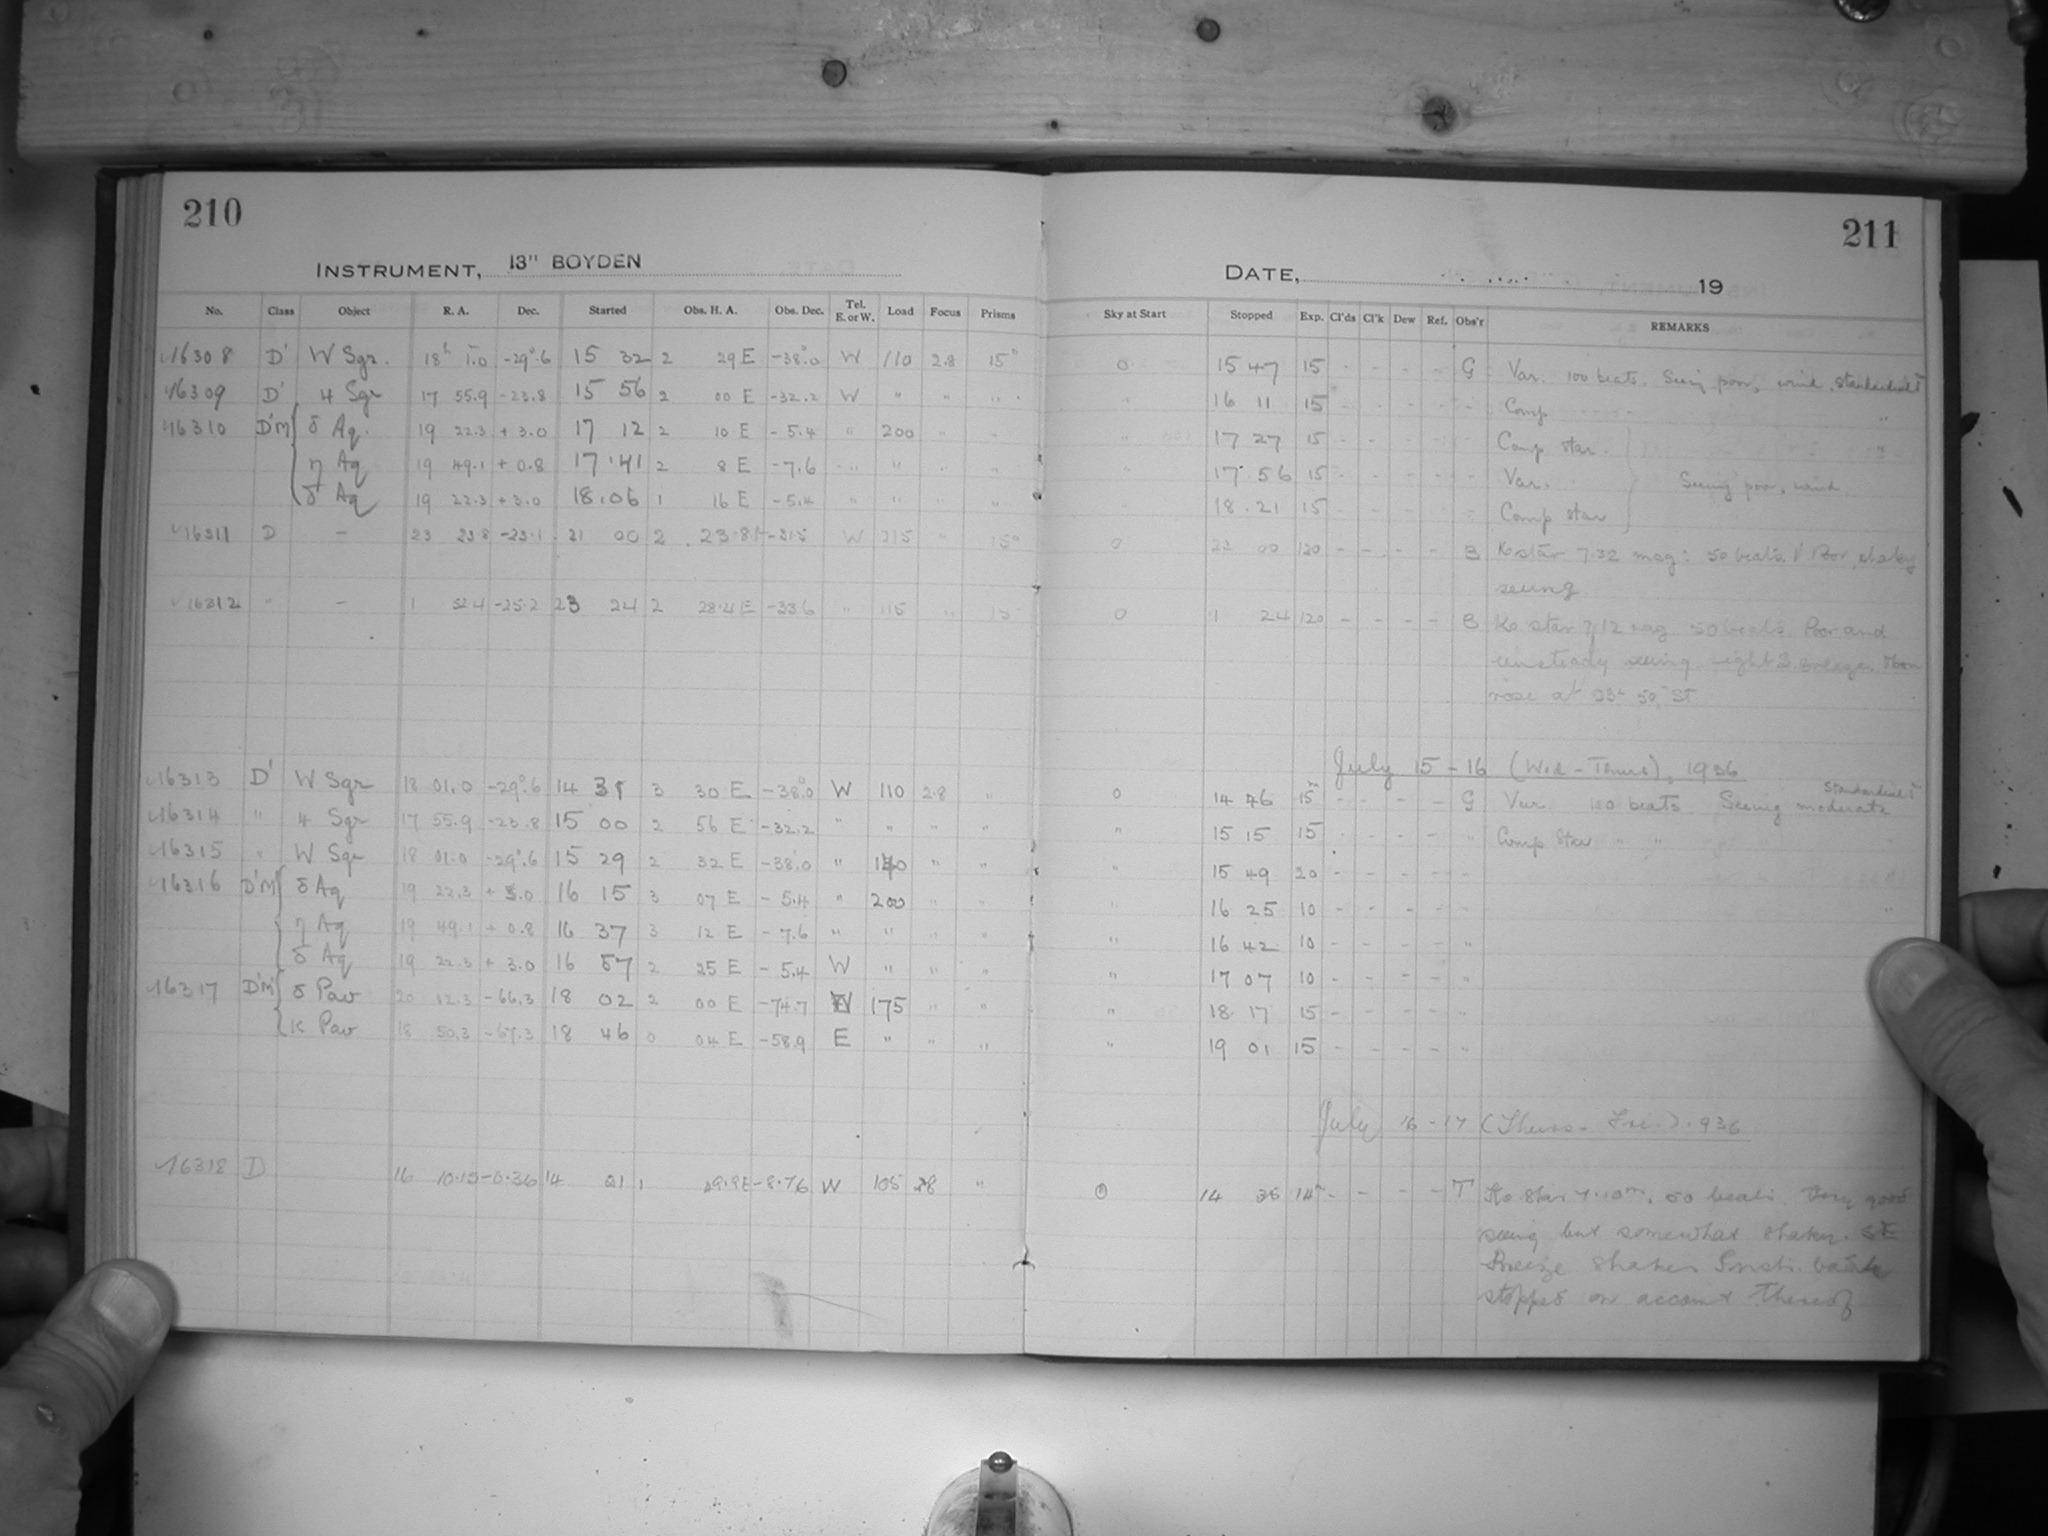 210
211
INSTRUMENT, 13" BOYDEN
DATE, 19
No. Class Object R. A. Dec. Started Obs. H. A. Obs. Dec. Tel. E. or W. Load Focus Prisms Sky at Start Stopped Exp. Cl'ds Cl'k Dew Ref. Obs'r REMARKS
16308 D' W Sgr. 18h 1.0 -29°.6 15 32 2 29 E -38.0 W 110 2.8 15° 0 15 47 15 - - - - G Var. 100 beats. Seeing poor, wind. standardized
16309 D' 4 Sgr 17 55.9 -23.8 15 56 2 00 E -32.2 W " " " " 16 11 15 - - - - - Comp "
16310 D'M δ Aq. 19 22.3 + 3.0 17 12 2 10 E - 5.4 " 200 " - " 17 27 15 - - - - - Comp star. "
η Aq 19 49.1 + 0.8 17 41 2 8 E -7.6 " " " " " 17 56 15 - - - - - Var. Seeing poor, wind
δ Aq 19 22.3 + 3.0 18.06 1 16 E -5.4 " " " " 18.21 15 - - - - Comp star
16311 D - 23 23.8 -23.1 21 00 2 23.8 E -31.5 W 215 " 15° 0 23 00 120 - - - - B Ko star 7.32 mag: 50 beats. Poor, shaky
seeing
16312 " - 1 52.4 -25.2 23 24 2 28.4 E -33.6 " 115 " 15 0 1 24 120 - - - - B Ko star 7.12 mag 50 beats Poor and
unsteady seeing. Light S. Breeze. Moon
rose at 23h 50m ST
July 15 - 16 (Wed - Thurs), 1936
16313 D' W Sgr 18 01.0 -29°.6 14 31 3 30 E -38.0 W 110 2.8 " 0 14 46 15m - - - - G Var. 100 beats Seeing moderate standardized
16314 " 4 Sgr 17 55.9 -23.8 15 00 2 56 E -32.2 " " " " " 15 15 15 - - - - " Comp Star " "
16315 " W Sgr 18 01.0 -29°.6 15 29 2 32 E -38.0 " 140 " " " 15 49 20 - - - -
16316 D'M δ Aq 19 22.3 + 3.0 16 15 3 07 E - 5.4 " 200 " " " 16 25 10 - - - - "
η Aq 19 49.1 + 0.8 16 37 3 12 E - 7.6 " " " " " 16 42 10 - - - - "
δ Aq 19 22.3 + 3.0 16 57 2 25 E - 5.4 W " " " " 17 07 10 - - - - "
16317 D'M δ Pav 20 12.3 -66.3 18 02 2 00 E -74.7 W 175 " " " 18 17 15 - - - - "
κ Pav 18 50.3 -67.3 18 46 0 04 E -58.9 E " " " " 19 01 15 - - - - "
July 16 - 17 (Thurs - Fri.) 1936
16318 D 16 10.15 -0.36 14 21 1 49.9E -8.76 W 105 2.8 " 0 14 35 14m - - - - T Ko Star 7.10m. 50 beats. Very good
seeing but somewhat shaky. SE
Breeze shakes Instr.
stopped on account thereof